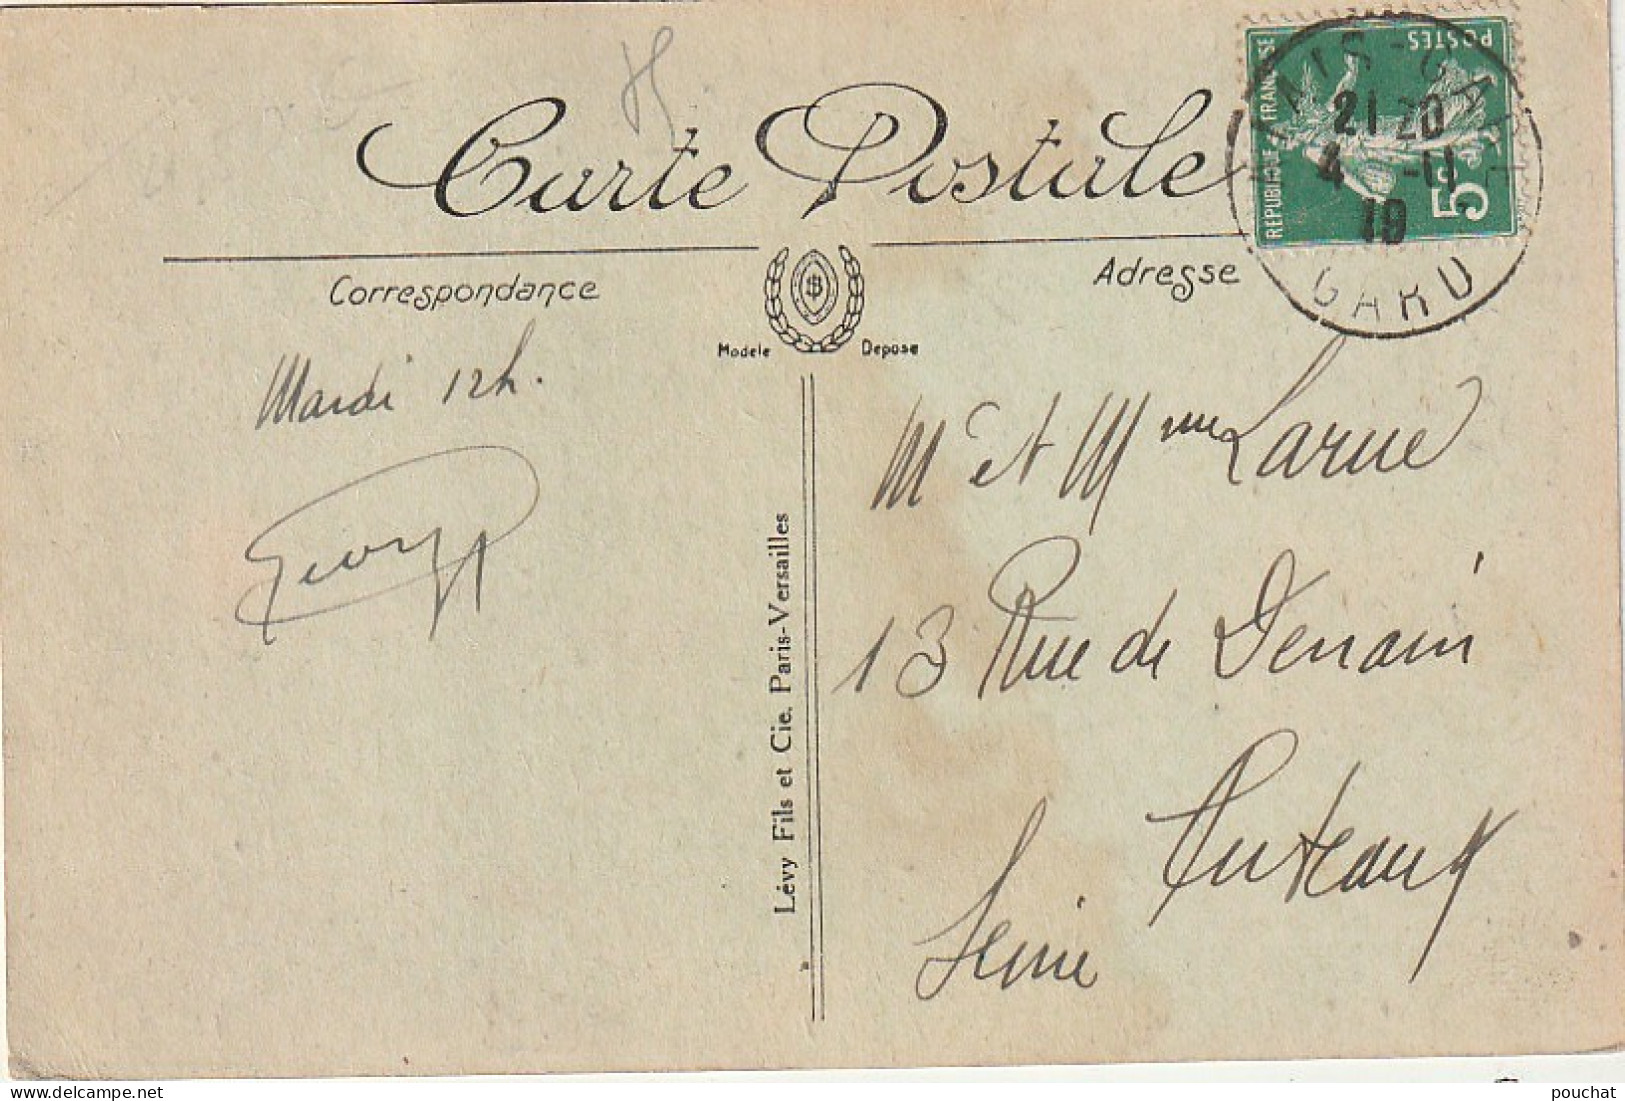 Carte Postale
Correspondance
Adresse
Modèle Déposé
RÉPUBLIQUE FRANÇAISE
POSTES
5c
21 20
4 -11
19
GARD
Mardi 12h.
Georges
Mr et Mme Larue
13 Rue de Denain
Puteaux
Seine
Lévy Fils et Cie. Paris-Versailles
pouchat